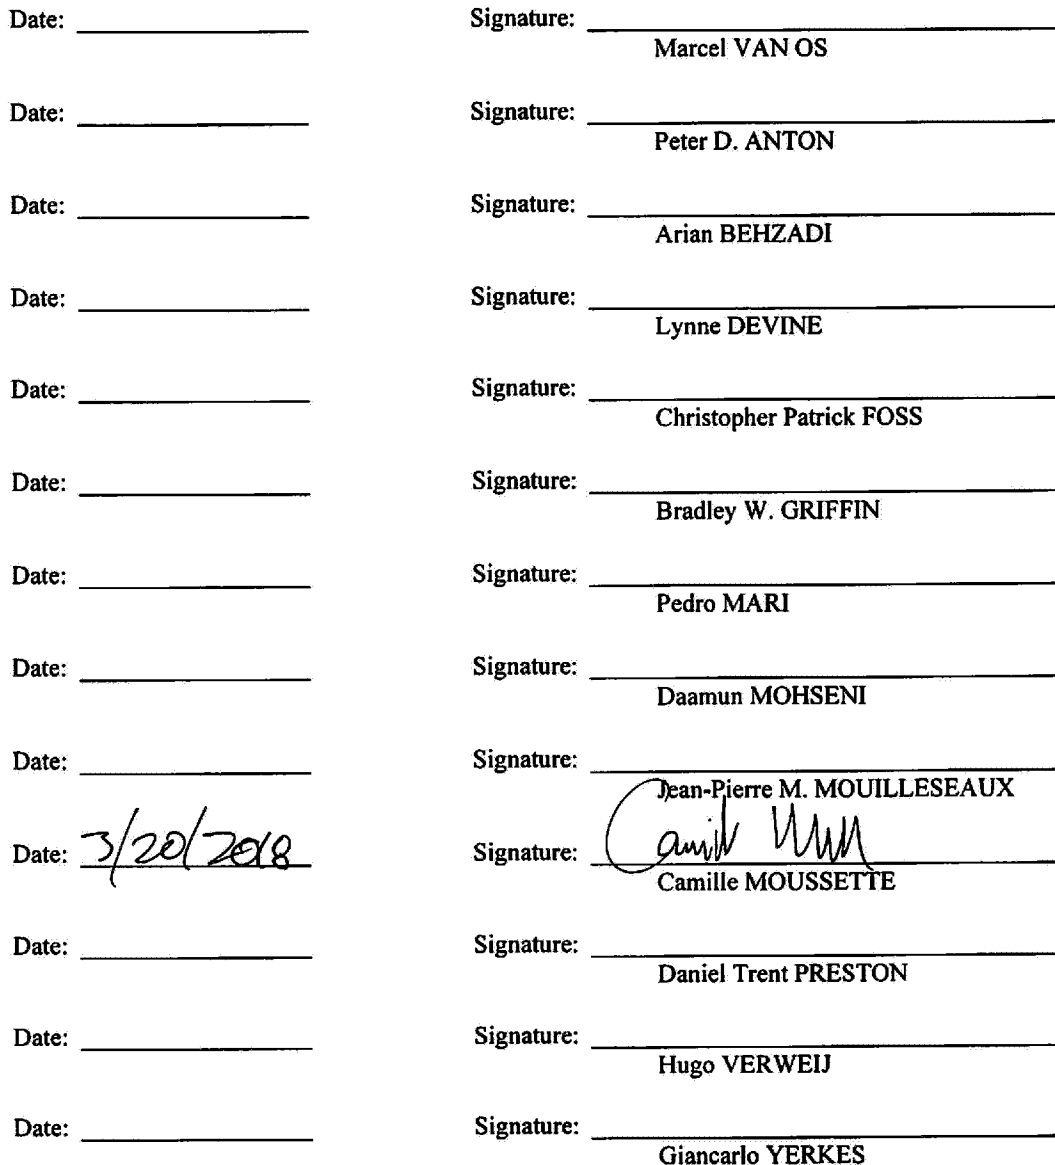 Date: Signature:
Marcel VAN OS
Date: Signature:
Peter D. ANTON
Date: Signature:
Arian BEHZADI
Date: Signature:
Lynne DEVINE
Date: Signature:
Christopher Patrick FOSS
Date: Signature:
Bradley W. GRIFFIN
Date: Signature:
Pedro MARI
Date: Signature:
Daamun MOHSENI
Date: Signature:
Jean-Pierre M. MOUILLESEAUX
Date: 3/20/2018 Signature:
Camille MOUSSETTE
Date: Signature:
Daniel Trent PRESTON
Date: Signature:
Hugo VERWEIJ
Date: Signature:
Giancarlo YERKES